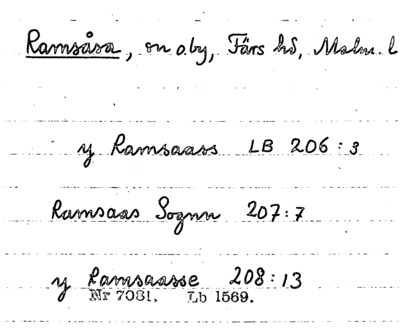 Ramsåsa, sn o. by, Färs hd, Malm. l
y Ramsaass LB 206:3
Ramsaas Sognn 207:7
y Ramsaasse 208:13
Nr 7031. Lb 1569.